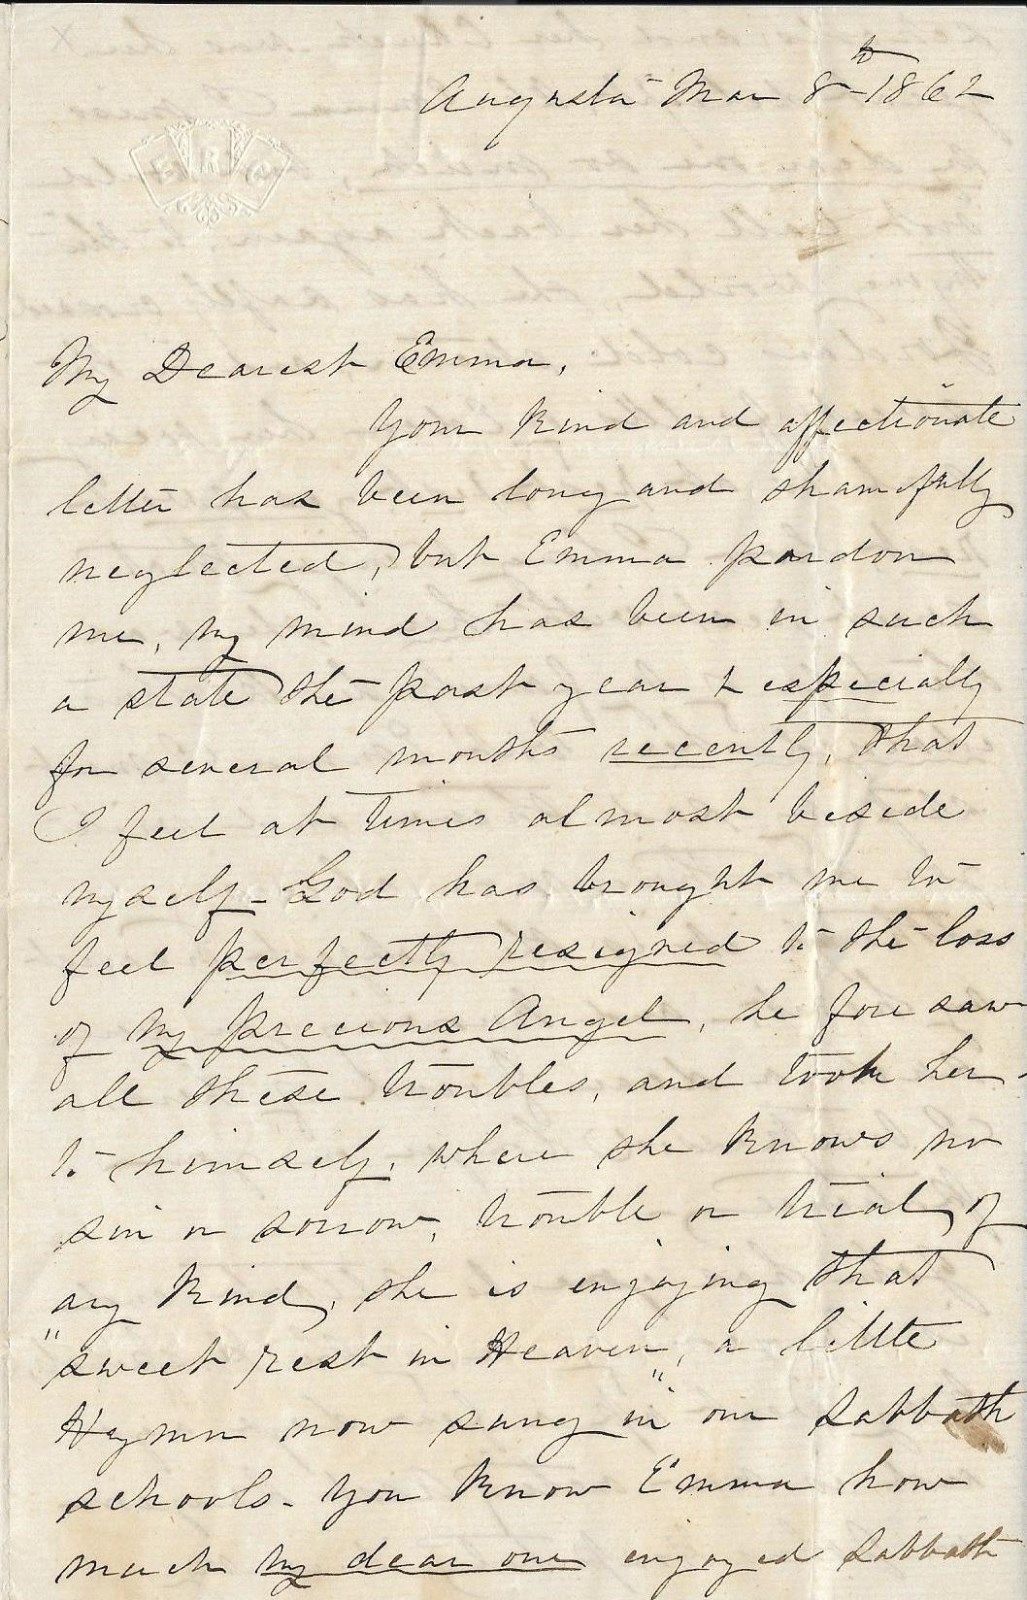 Augusta Mar 8th 1862
E R C
My Dearest Emma,
Your kind and affectionate
letter has been long and shamefully
neglected, but Emma pardon
me, my mind has been in such
a state the past year & especially
for several months recently, that
I feel at times almost beside
myself - God has brought me to
feel perfectly resigned to the loss
of my precious Angel, he foresaw
all these troubles, and took her
to himself, where she knows no
sin or sorrow, trouble or trial, of
any kind, she is enjoying that
"sweet rest in Heaven", a little
Hymn now sung in our Sabbath
schools - You know Emma how
much my dear one enjoyed Sabbath